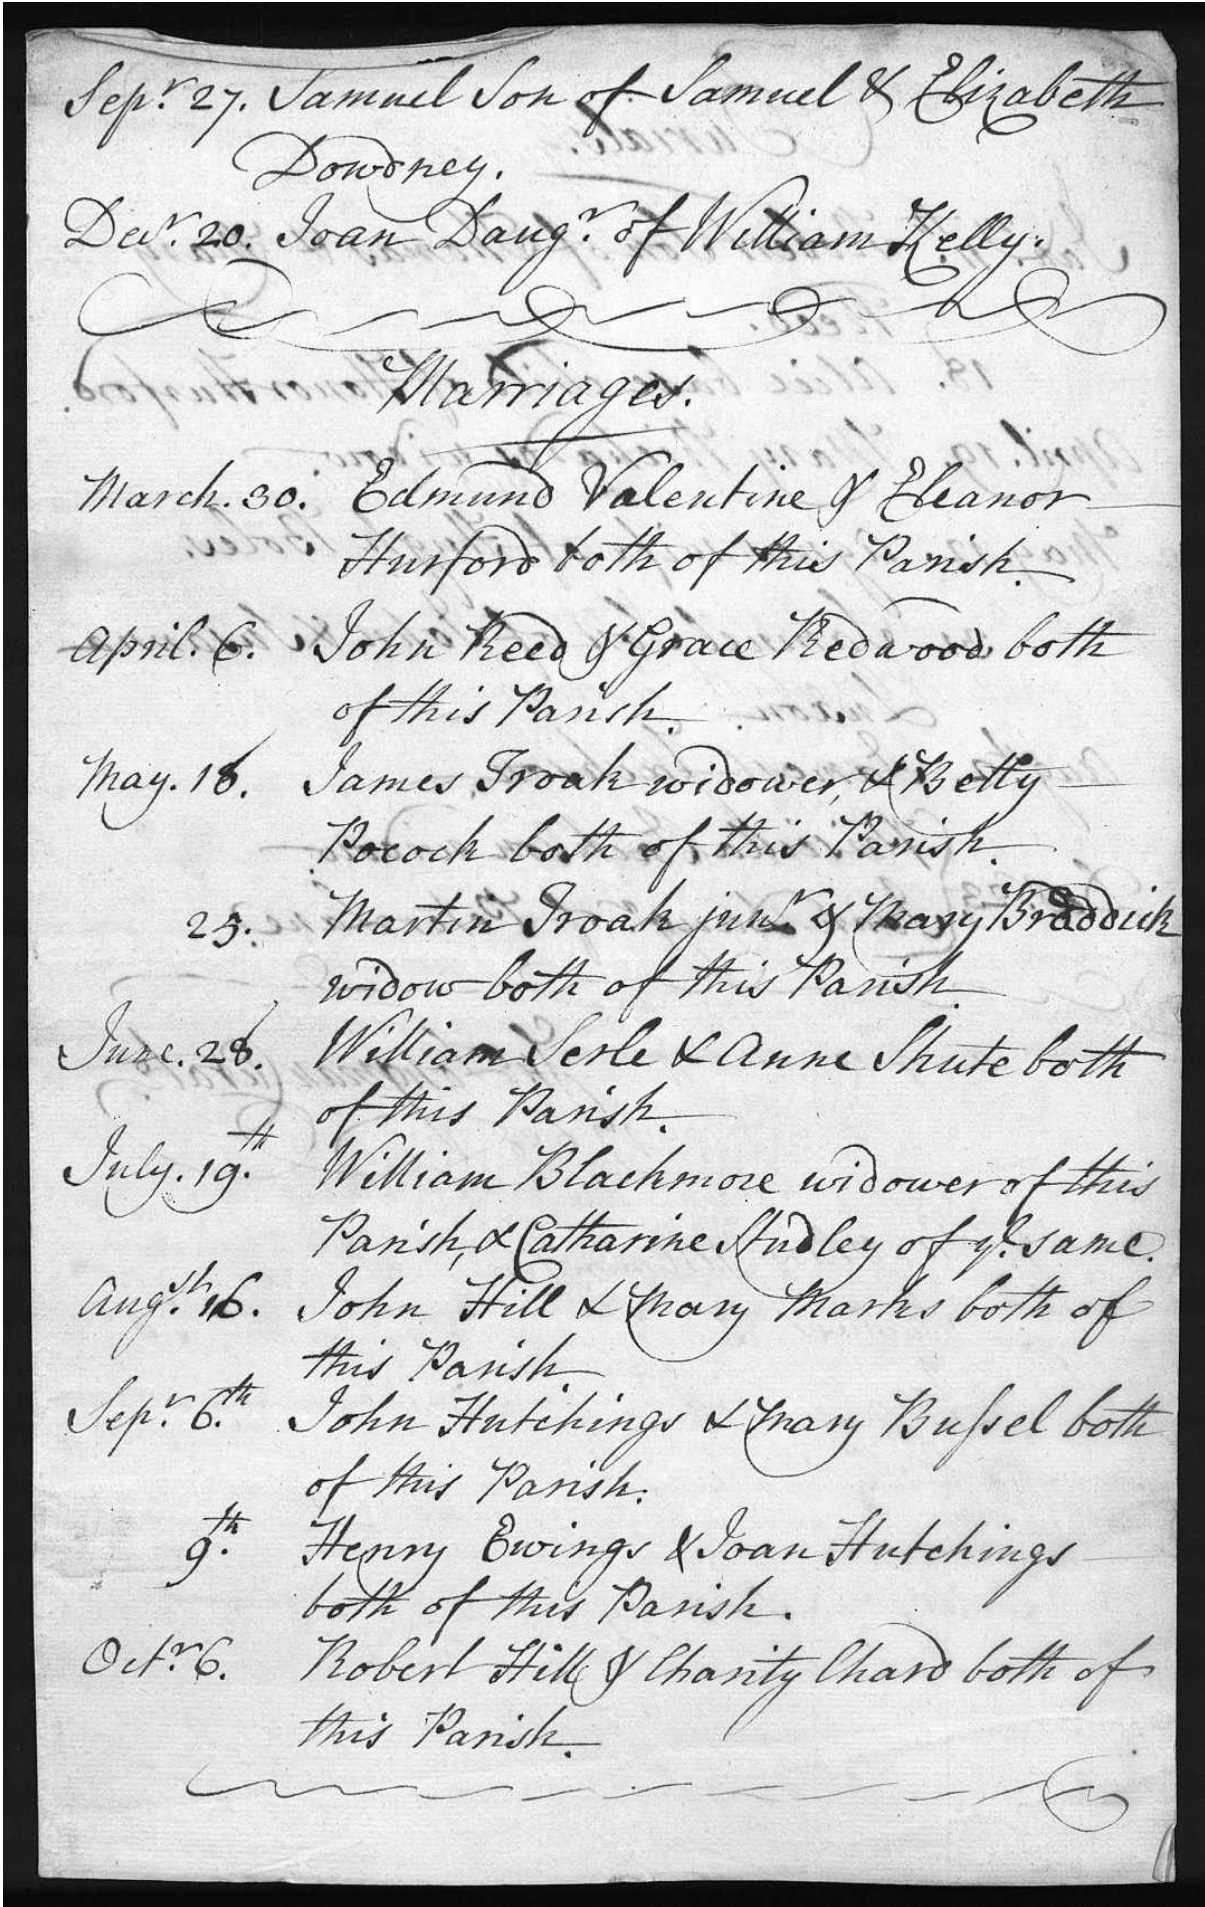 Sepr. 27. Samuel Son of Samuel & Elizabeth
Dowdney.
Decr. 20. Joan Daugr. of William Kelly.
Marriages.
March. 30. Edmund Valentine & Eleanor
Hurford both of this Parish.
April. 6. John Reed & Grace Redwood both
of this Parish.
May. 18. James Troak widower, & Betty
Pocock both of this Parish.
25. Martin Troak junr. & Mary Braddick
widow both of this Parish.
June. 28. William Serle & Anne Shute both
of this Parish.
July. 19th. William Blackmore widower of this
Parish, & Catharine Studley of ye. same.
Augst. 16. John Hill & Mary Marks both of
this Parish.
Sepr. 6th. John Hutchings & Mary Bussel both
of this Parish.
9th. Henry Ewings & Joan Hutchings
both of this Parish.
Octr. 6. Robert Hill & Charity Chard both of
this Parish.